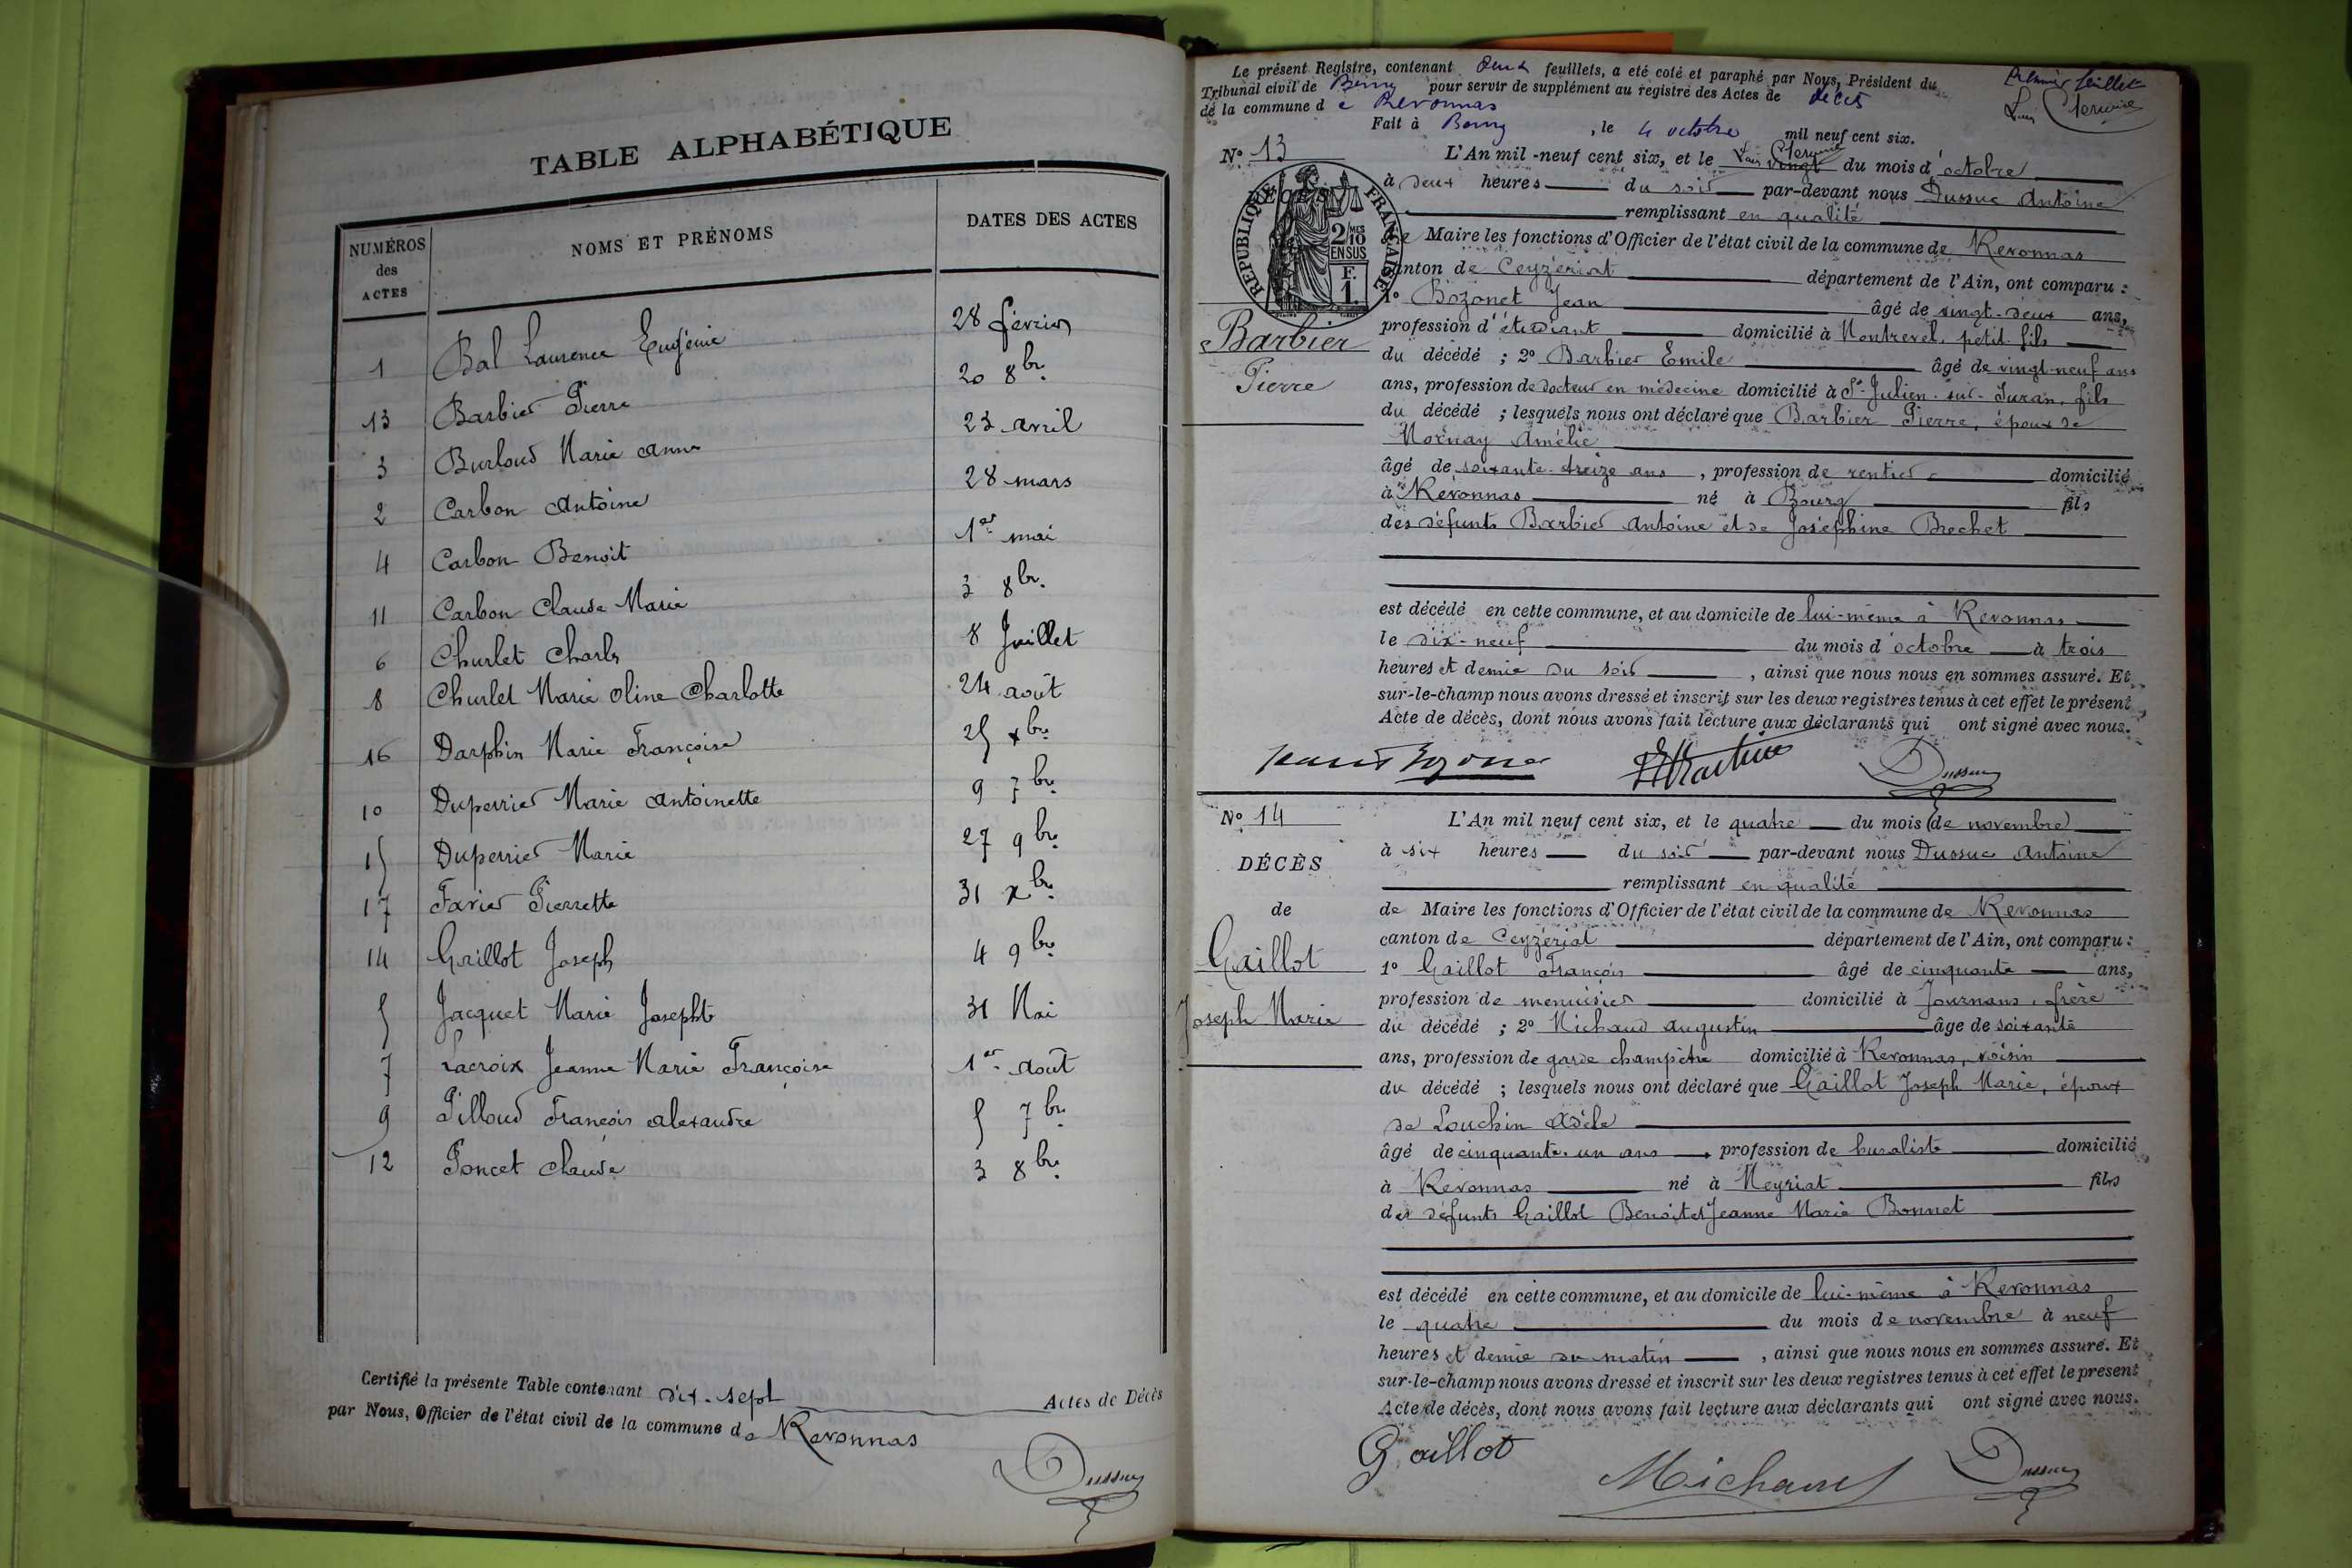 TABLE ALPHABÉTIQUE
NUMÉROS des ACTES
NOMS ET PRÉNOMS
DATES DES ACTES
1 Bal Laurence Eugénie 28 février
13 Barbier Pierre 20 8bre
3 Burloud Marie Anne 23 avril
2 Carbon Antoine 28 mars
4 Carbon Benoit 1er mai
11 Carbon Claude Marie 3 8bre
6 Churlet Charles 8 Juillet
8 Churlet Marie Oline Charlotte 24 août
16 Darphin Marie Françoise 25 xbre
10 Duperrier Marie Antoinette 9 7bre
15 Duperrier Marie 27 9bre
17 Favier Pierrette 31 xbre
14 Gaillot Joseph 4 9bre
5 Jacquet Marie Josephte 31 Mai
7 Lacroix Jeanne Marie Françoise 1er août
9 Pilloud François Alexandre 5 7bre
12 Poncet Claude 3 8bre
Certifié la présente Table contenant dix-sept Actes de Décès
par Nous, Officier de l'état civil de la commune de Revonnas
Dussuc
Le présent Registre, contenant deux feuillets, a été coté et paraphé par Nous, Président du
Tribunal civil de Bourg pour servir de supplément au registre des Actes de décès
de la commune de Revonnas
Fait à Bourg, le 4 octobre mil neuf cent six.
Premier feuillet
N° 13
L'An mil-neuf cent six, et le vingt du mois d'octobre
à deux heures du soir par-devant nous Dussuc Antoine
remplissant en qualité
de Maire les fonctions d'Officier de l'état civil de la commune de Revonnas
canton de Ceyzériat département de l'Ain, ont comparu :
RÉPUBLIQUE FRANÇAISE
2/10 MES EN SUS
F. 1.
Barbier
Pierre
1° Bozonet Jean âgé de vingt-deux ans,
profession d'étudiant domicilié à Montrevel, petit-fils
du décédé ; 2° Barbier Emile âgé de vingt-neuf ans
ans, profession de docteur en médecine domicilié à St-Julien-sur-Suran, fils
du décédé ; lesquels nous ont déclaré que Barbier Pierre, époux de
Mornay Amélie
âgé de soixante-treize ans, profession de rentier domicilié
à Revonnas né à Bourg fils
des défunts Barbier Antoine et de Joséphine Brechet
est décédé en cette commune, et au domicile de lui-même à Revonnas
le dix-neuf du mois d'octobre à trois
heures et demie du soir, ainsi que nous nous en sommes assuré. Et
sur-le-champ nous avons dressé et inscrit sur les deux registres tenus à cet effet le présent
Acte de décès, dont nous avons fait lecture aux déclarants qui ont signé avec nous.
Dussuc
N° 14
DÉCÈS
de
Gaillot
Joseph Marie
L'An mil neuf cent six, et le quatre du mois de novembre
à six heures du soir par-devant nous Dussuc Antoine
remplissant en qualité
de Maire les fonctions d'Officier de l'état civil de la commune de Revonnas
canton de Ceyzériat département de l'Ain, ont comparu :
1° Gaillot François âgé de cinquante ans,
profession de menuisier domicilié à Journans, frère
du décédé ; 2° Michaud Augustin âge de soixante
ans, profession de garde champêtre domicilié à Revonnas, voisin
du décédé ; lesquels nous ont déclaré que Gaillot Joseph Marie, époux
de Louchin Adèle
âgé de cinquante-un ans, profession de buraliste domicilié
à Revonnas né à Meyriat fils
des défunts Gaillot Benoit et Jeanne Marie Bonnet
est décédé en cette commune, et au domicile de lui-même à Revonnas
le quatre du mois de novembre à neuf
heures et demie du matin, ainsi que nous nous en sommes assuré. Et
sur-le-champ nous avons dressé et inscrit sur les deux registres tenus à cet effet le présent
Acte de décès, dont nous avons fait lecture aux déclarants qui ont signé avec nous.
Gaillot Michaud Dussuc